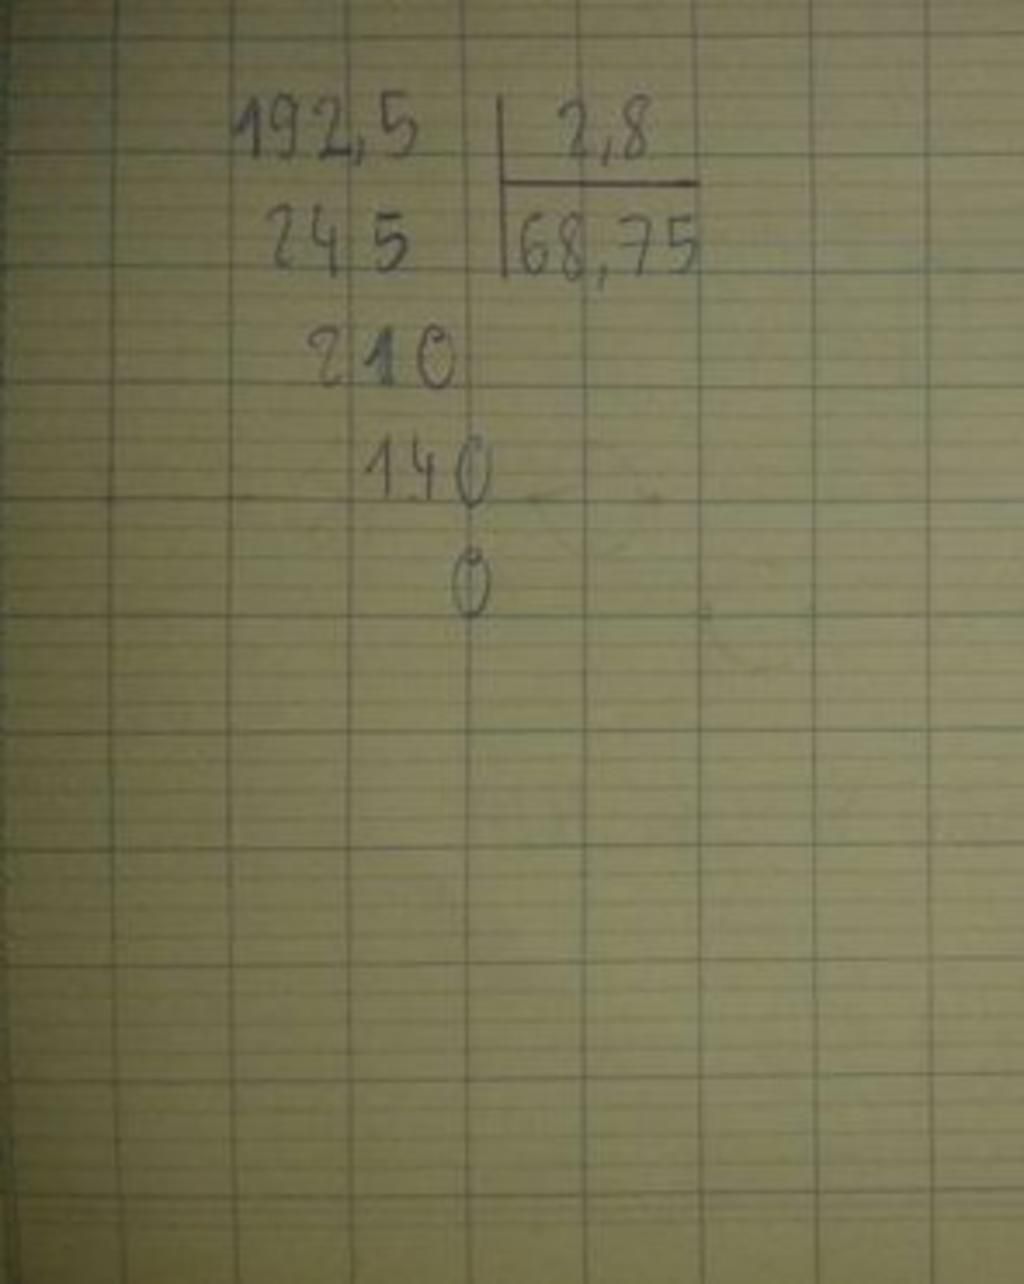 192,5 2,8
245 68,75
210
140
0